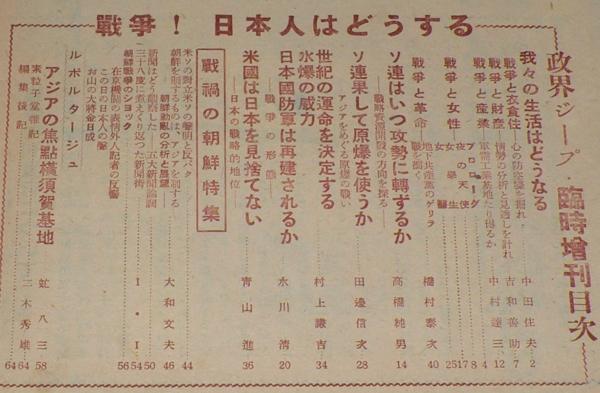 戰爭！日本人はどうする
政界ジープ・臨時增刊目次
我々の生活はどうなる 中田住夫 2
戰爭と衣食住 心の防空壕を掘れ 吉和善助 7
戰爭と財產 情勢の分析と見透しを計れ 中村達三 12
戰爭と産業 軍需工業基地たり得るか
プロローグ 4
戰爭と女性
夜の天使 8
女學生 17
女醫 25
戰爭と革命 地下共産黨のゲリラ戰を衝く 橋村泰次 40
ソ連はいつ攻勢に轉ずるか 高橋純男 14
戰略資源開發の方向を探る
ソ連果して原爆を使うか 田邊信次 28
アジアをめぐる原爆の戰い
世紀の運命を決定する
水爆の威力 村上讓吉 34
戰爭の形態
日本國防軍は再建されるか 永川清 20
米國は日本を見捨てない 青山進 36
日本の戰略的地位
戰禍の朝鮮特集
米ソの對立米ソの聲明と反バク 44
朝鮮を制するものは、アジアを制する
朝鮮戰爭の分析と展望 大和文夫 46
新聞はどう觀察した 五大新聞論調 50
三十八度にみえり返つた新聞街 54
朝鮮戰爭のショック I・I
在京機關の表情外人記者の反響 56
この日の日本人の聲
お山の大將金日成
ルポルタージュ
アジアの焦點横須賀基地 虻八三 58
素粒子堂雜記 二木秀雄 64
編集後記 64